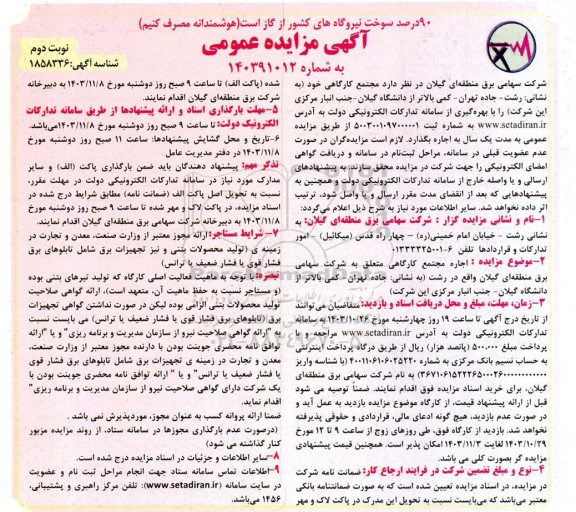 ۹۰درصد سوخت نیروگاه های کشور از گاز است(هوشمندانه مصرف کنیم)
آگهی مزایده عمومی
به شماره ۱۴۰۳۹۱۰۱۲
نوبت دوم
شناسه آگهی: ۱۸۵۸۳۳۶
شرکت سهامی برق منطقه‌ای گیلان در نظر دارد مجتمع کارگاهی خود (به
نشانی: رشت- جاده تهران- کمی بالاتر از دانشگاه گیلان-جنب انبار مرکزی
این شرکت) را با بهره‌گیری از سامانه تدارکات الکترونیکی دولت به آدرس
www.setadiran.ir به شماره ثبت ۵۰۰۳۰۰۱۰۹۷۰۰۰۰۰۱ از طریق مزایده
عمومی به مدت یک سال به اجاره بگذارد. لازم است مزایده‌گران در صورت
عدم عضویت قبلی در سامانه، مراحل ثبت‌نام در سامانه و دریافت گواهی
امضای الکترونیکی را جهت شرکت در مزایده محقق سازند. پیشنهادهای
ارسالی و یا واصله خارج از سامانه تدارکات الکترونیکی دولت و همچنین به
پیشنهادهایی که بعد از انقضای مدت مقرر ارسال یا واصل شود، ترتیب
اثر داده نخواهد شد. سایر اطلاعات مورد نیاز به شرح ذیل اعلام می‌گردد:
۱-نام و نشانی مزایده گزار : شرکت سهامی برق منطقه‌ای گیلان: به
نشانی رشت - خیابان امام خمینی(ره) – چهار راه قدس (میکائیل) - امور
تدارکات و قراردادها تلفن ۶-۰۱۳۳۳۳۳۵۰۰۱
۲-موضوع مزایده : اجاره مجتمع کارگاهی متعلق به شرکت سهامی
برق منطقه‌ای گیلان واقع در رشت (به نشانی: جاده تهران- کمی بالاتر از
دانشگاه گیلان- جنب انبار مرکزی این شرکت)
۳-زمان، مهلت، مبلغ و محل دریافت اسناد و بازدید: متقاضیان می‌توانند
از تاریخ درج آگهی تا ساعت ۱۹ روز چهارشنبه مورخ ۱۴۰۳/۱۰/۲۶ به سامانه
تدارکات الکترونیکی دولت به آدرس www.setadiran.ir مراجعه و با
پرداخت مبلغ ۵۰۰,۰۰۰ (پانصد هزار) ریال از طریق درگاه پرداخت اینترنتی
به حساب نسیم بانک مرکزی به شماره ۴۰۰۱۱۰۶۱۰۶۰۲۵۲۲۰ (با شناسه واریز
به نام شرکت سهامی برق منطقه‌ای
گیلان، برای خرید اسناد مزایده فوق اقدام نمایند. ضمناً توصیه می شود
قبل از ارائه پیشنهاد قیمت، از کارگاه موضوع مزایده بازدید به عمل آید و
در صورت عدم بازدید، هیچ گونه ادعای مالی، قراردادی و حقوقی پذیرفته
نخواهد شد. بازدید از کارگاه فوق، طی روزهای زوج از ساعت ۹ تا ۱۲ مورخ
۱۴۰۳/۱۰/۲۹ لغایت ۱۴۰۳/۱۱/۳ امکان پذیر است. همچنین قیمت پیشنهادی
مزایده گر بصورت کلی می باشد.
۴-نوع و مبلغ تضمین شرکت در فرآیند ارجاع کار: ضمانت نامه شرکت
در مزایده، در اسناد مزایده تعیین شده است که به صورت ضمانتنامه بانکی
معتبر می‌باشد که می‌بایست نسبت به تحویل این مدرک در پاکت لاک و مهر
شده (پاکت الف) تا ساعت ۹ صبح روز دوشنبه مورخ ۱۴۰۳/۱۱/۸ به دبیرخانه
شرکت برق منطقه‌ای گیلان اقدام نمایند.
۵-مهلت بارگذاری اسناد و ارائه پیشنهادها از طریق سامانه تدارکات
الکترونیک دولت: تا ساعت ۹ صبح روز دوشنبه مورخ ۱۴۰۳/۱۱/۸می‌باشد.
۶-تاریخ و محل گشایش پیشنهادها: ساعت ۱۱ صبح روز دوشنبه مورخ
۱۴۰۳/۱۱/۸ در دفتر مدیریت عامل
تذکر مهم: پیشنهاد دهندگان باید ضمن بارگذاری پاکت (الف) و سایر
مدارک مورد نیاز در سامانه تدارکات الکترونیکی دولت در مهلت مقرر،
نسبت به تحویل اصل پاکت الف (ضمانت نامه) مطابق شرایط درج شده در
اسناد مزایده، در پاکت لاک و مهر شده تا ساعت ۹ صبح روز دوشنبه مورخ
۱۴۰۳/۱۱/۸ به دبیرخانه شرکت سهامی برق منطقه‌ای گیلان اقدام نمایند.
۷- شرایط مستاجر: ارائه مجوز معتبر از وزارت صنعت، معدن و تجارت در
زمینه ی (تولید محصولات بتنی و نیز تجهیزات برق شامل تابلوهای برق
فشار قوی یا فشار ضعیف یا ترانس)
تبصره: با توجه به ماهیت فعالیت اصلی کارگاه که تولید تیرهای بتنی بوده
(و مستاجر نسبت به حفظ ماهیت آن، متعهد است)، ارائه گواهی صلاحیت
تولید محصولات بتنی الزامی بوده لیکن در صورت نداشتن گواهی تجهیزات
برق (تابلوهای برق فشار قوی یا فشار ضعیف یا ترانس) می بایست نسبت
به "ارائه گواهی صلاحیت نیرو از سازمان مدیریت و برنامه ریزی" و یا "ارائه
توافق نامه محضری جوینت بودن با دارنده مجوز معتبر از وزارت صنعت،
معدن و تجارت در زمینه ی تجهیزات برق شامل تابلوهای برق فشار قوی
یا فشار ضعیف یا ترانس" و یا " ارائه توافق نامه محضری جوینت بودن با
یک شرکت دارای گواهی صلاحیت نیرو از سازمان مدیریت و برنامه ریزی"
اقدام نماید.
ضمنا ارائه پروانه کسب به عنوان مجوز، موردپذیرش نمی باشد.
(درصورت عدم بارگذاری مجوزها در سامانه ستاد، از روند مزایده مزبور
کنار گذاشته می شود)
۸-سایر اطلاعات و جزئیات در اسناد مزایده درج شده است.
۹-اطلاعات تماس سامانه ستاد جهت انجام مراحل ثبت نام و عضویت
در سایت سامانه (www.setadiran.ir): تلفن مرکز راهبری و پشتیبانی،
۱۴۵۶ می‌باشد.